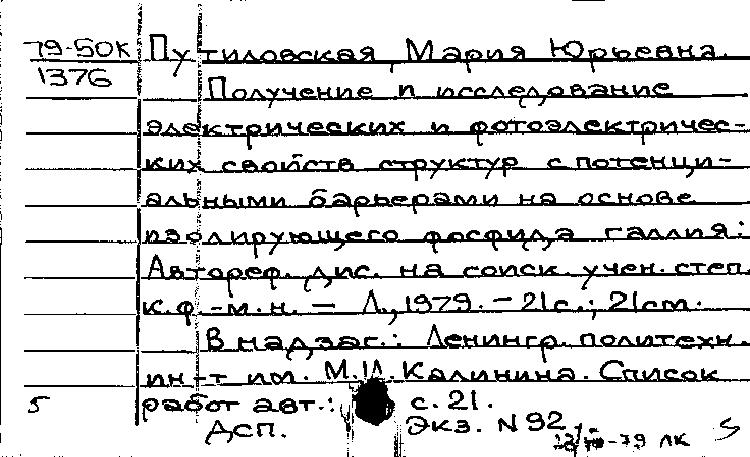 79-50К Путиловская, Мария Юрьевна.
1376 Получение и исследование
электрических и фотоэлектричес-
ких свойств структур с потенци-
альными барьерами на основе
изолирующего фосфида галлия:
Автореф. дис. на соиск. учен. степ.
к.ф.-м.н. — Л., 1979. - 21с.; 21см.
В надзаг.: Ленингр. политехн.
ин-т им. М.И. Калинина. Список
5 работ авт.: с. 21.
ДСП. Экз. N 92
-79 ЛК